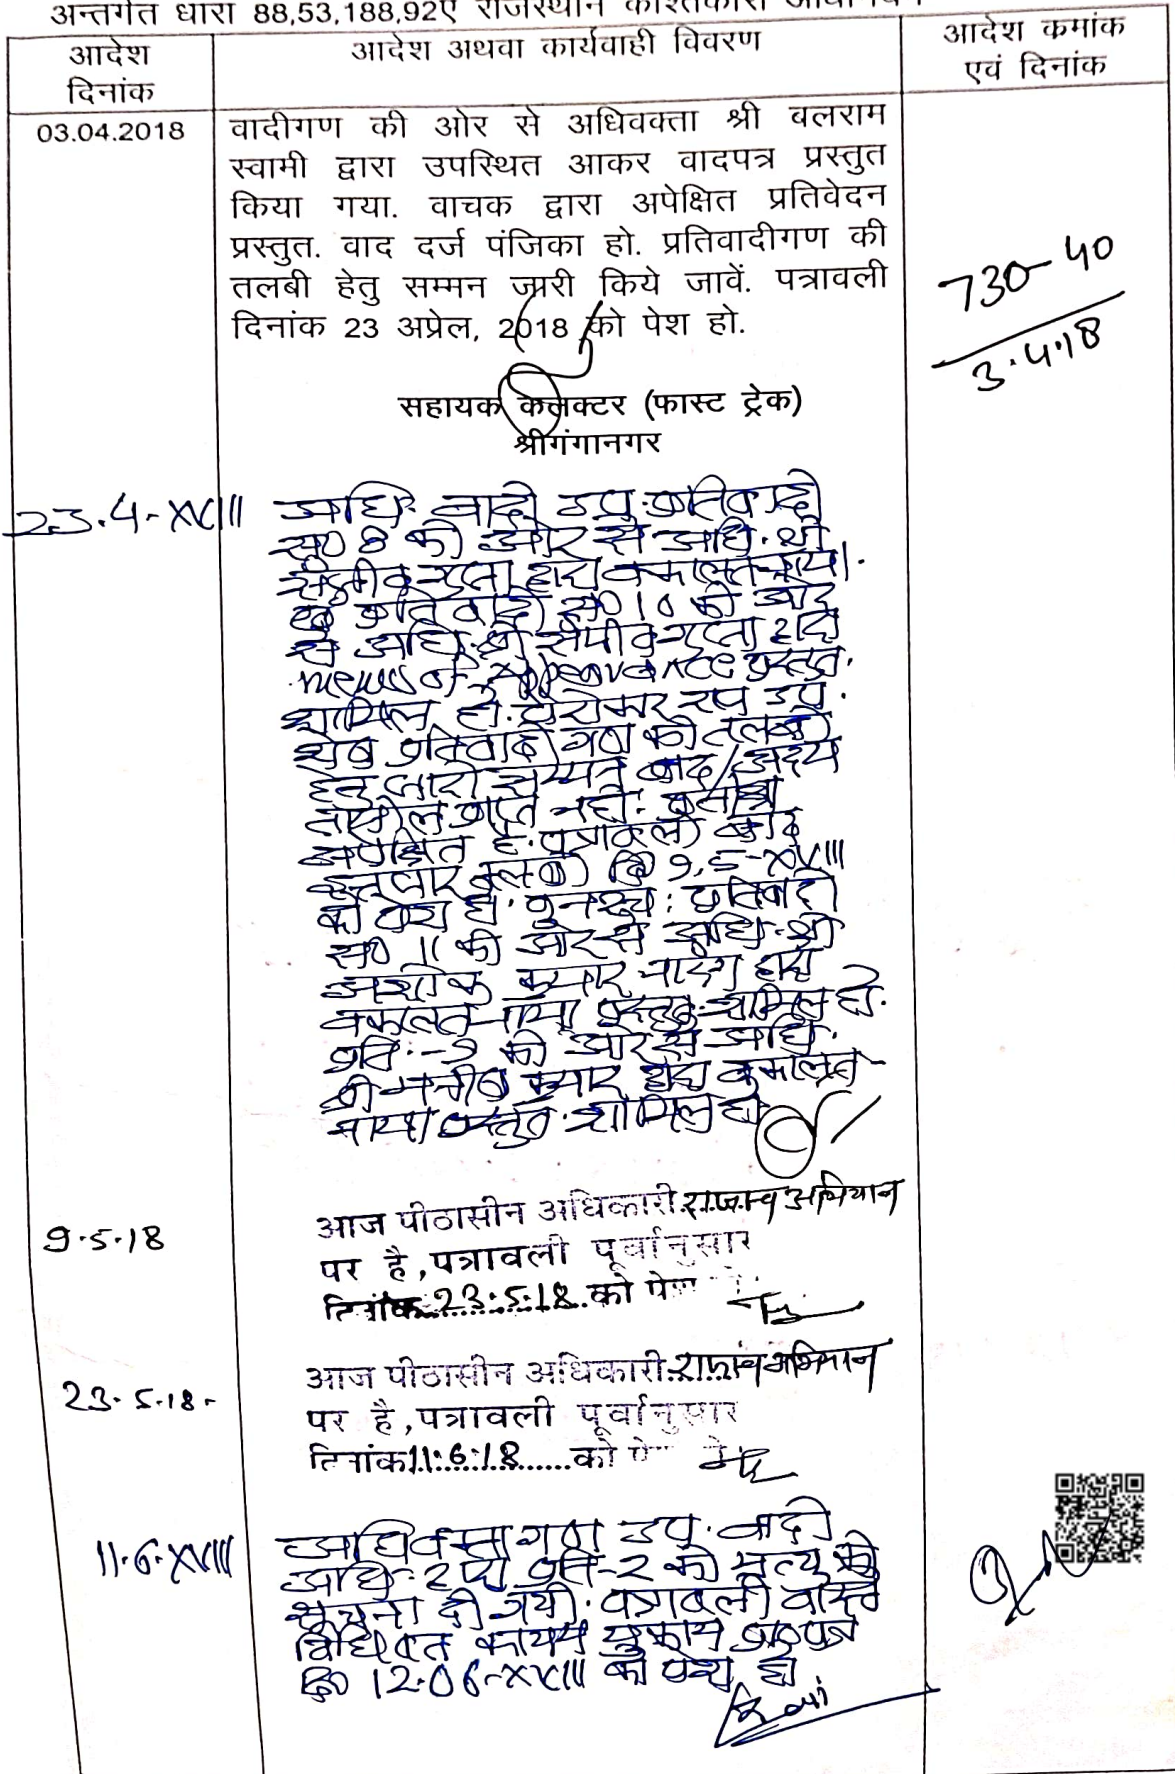 अन्तर्गत धारा 88,53,188,92ए राजस्थान काश्तकारी
आदेश दिनांक
आदेश अथवा कार्यवाही विवरण
आदेश कमांक एवं दिनांक
03.04.2018
वादीगण की ओर से अधिवक्ता श्री बलराम
स्वामी द्वारा उपस्थित आकर वादपत्र प्रस्तुत
किया गया. वाचक द्वारा अपेक्षित प्रतिवेदन
प्रस्तुत. वाद दर्ज पंजिका हो. प्रतिवादीगण की
तलबी हेतु सम्मन जारी किये जावें. पत्रावली
दिनांक 23 अप्रेल, 2018 को पेश हो.
730-40
3.4.18
सहायक कलक्टर (फास्ट ट्रेक)
श्रीगंगानगर
23.4-XVIII
अधि. वादी उप. प्रतिवादी
स0 8 की ओर से अधि. श्री
संजीव गुप्ता द्वारा वकालतनामा
प्रतिवादी स0 10 की ओर
से अधि. श्री संजीव गुप्ता द्वारा
of Appearance प्रस्तुत.
शामिल हो. उप.
शेष प्रतिवादीगण की तलबी
हेतु जारी सम्मन बाद/अदम
तामील प्राप्त नहीं. प्रतीक्षा
अपेक्षित है. पत्रावली वास्ते
दि0 9.5-XVIII
को पेश हो. पुनश्च: प्रतिवादी
स0 11 की ओर से अधि. श्री
अशोक कुमार द्वारा
वकालतनामा प्रस्तुत. शामिल हो.
प्रति.- की ओर से अधि.
श्री कुमार द्वारा वकालत-
नामा प्रस्तुत. शामिल हो
9.5.18
आज पीठासीन अधिकारी राजस्व अभियान
पर है, पत्रावली पूर्वानुसार
दिनांक 23.5.18 को पेश
23.5.18
आज पीठासीन अधिकारी राजस्व अभियान
पर है, पत्रावली पूर्वानुसार
दिनांक 11.6.18 को पेश
11.6.XVIII
अधिवक्तागण उप. वादी
अधि. द्वारा प्रति-2 की मृत्यु की
सूचना दी गयी. पत्रावली वास्ते
विधिवत कायम मुकाम प्रा0पत्र
दि0 12.06.XVIII को पेश हो